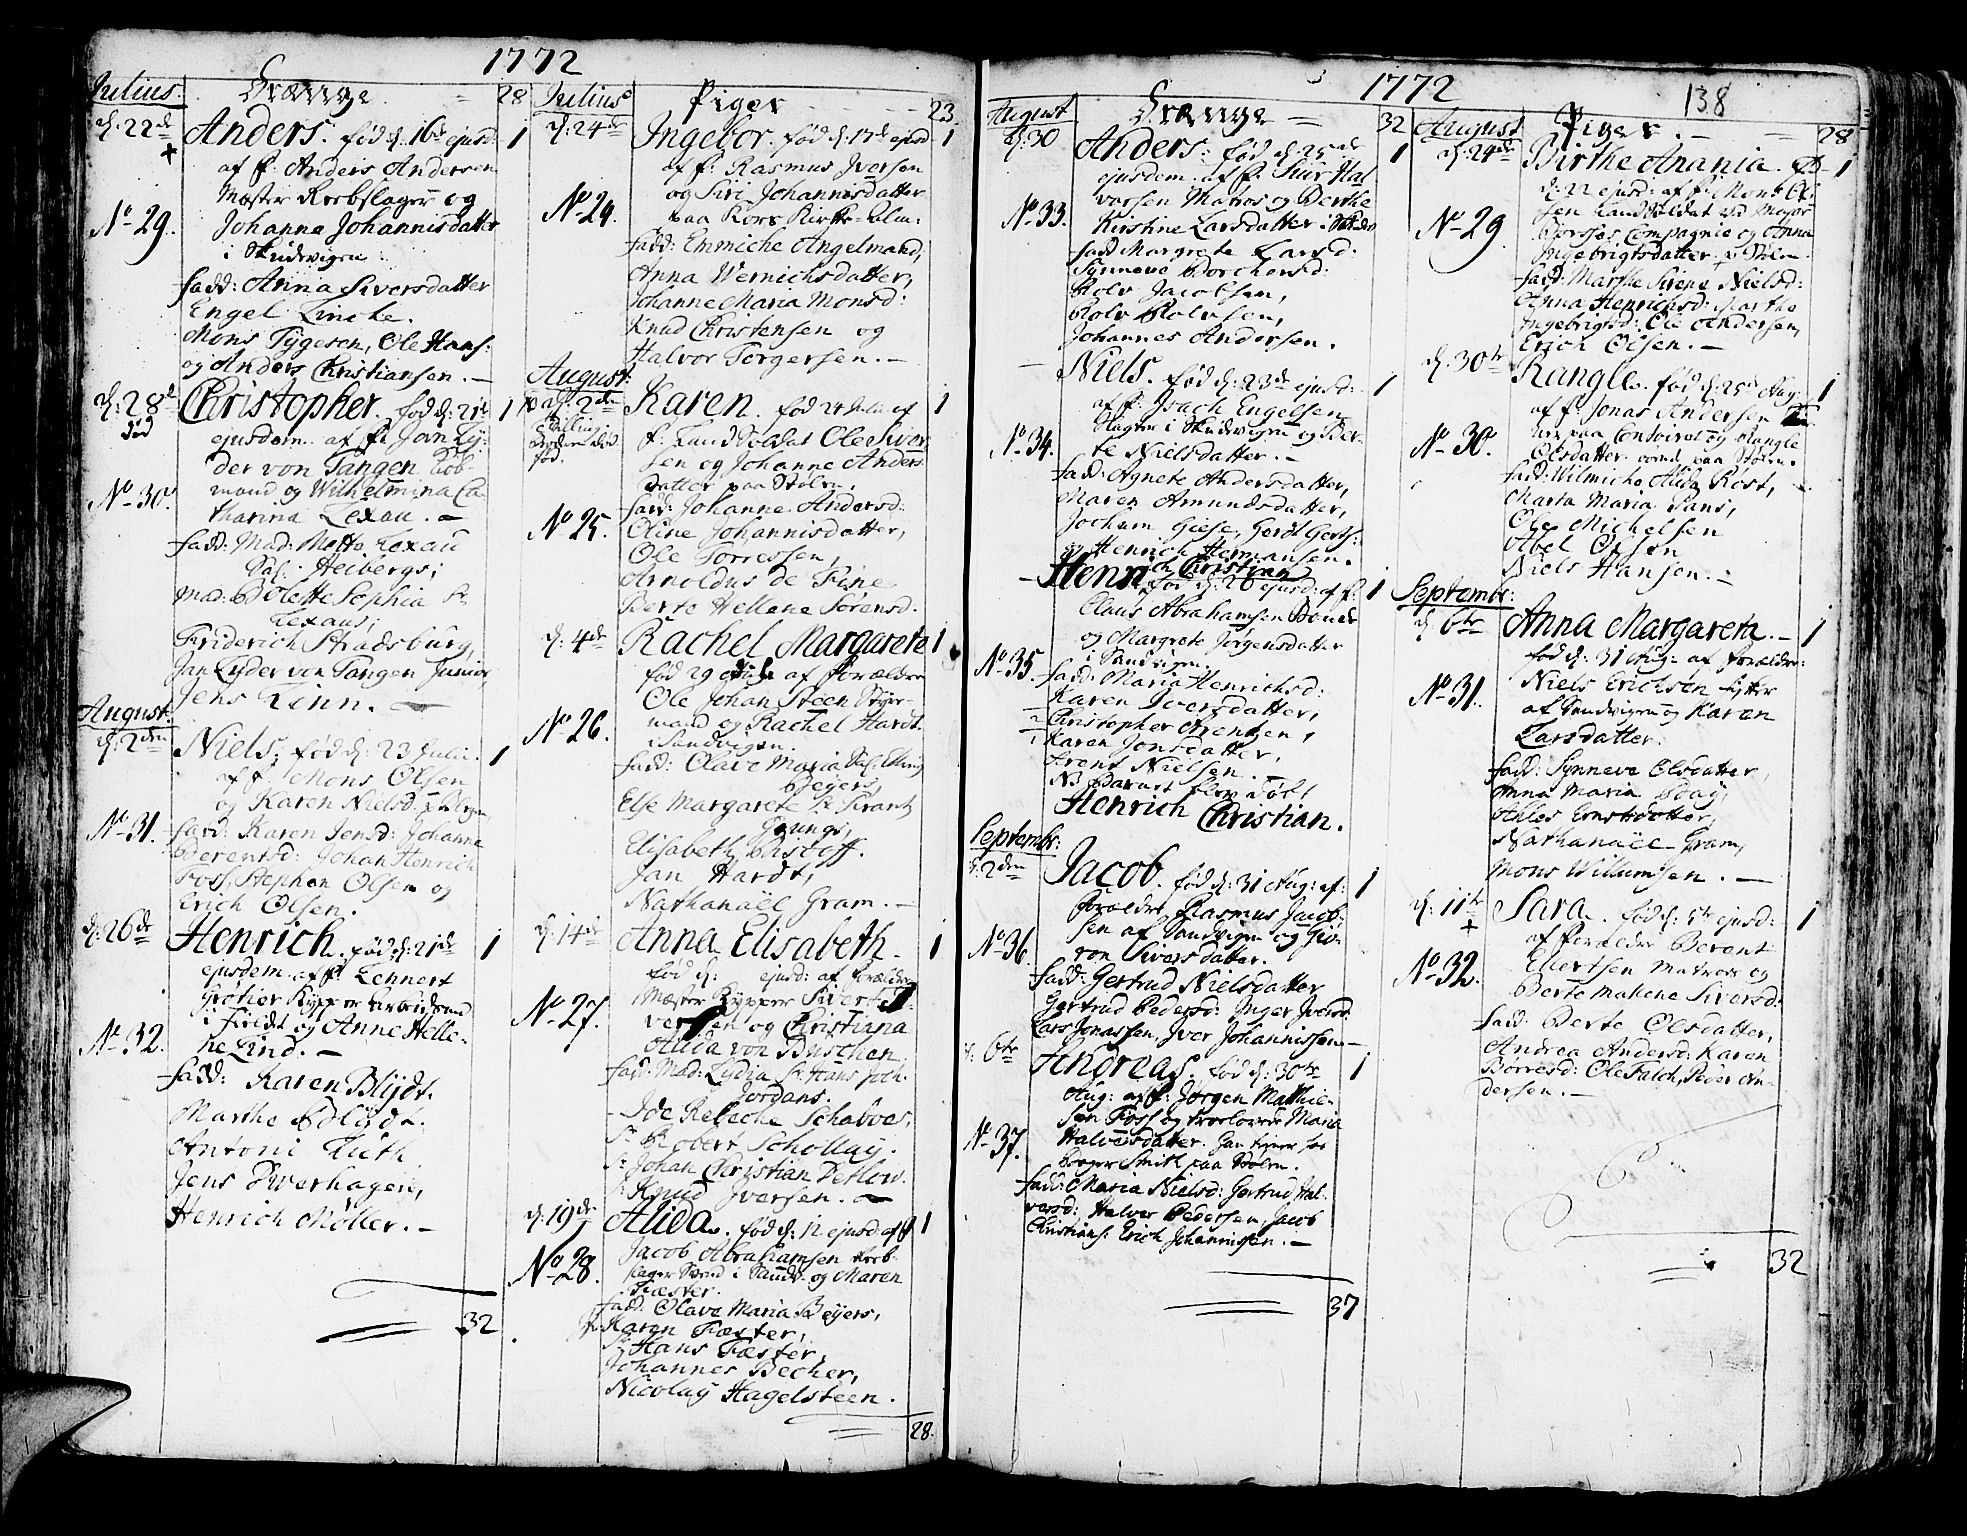 1772
Julius. Drænge 28
d: 22de Anders. fød d: 16de ejusd: 1
af f: Anders Andersen
Mæster Rebslager og
No 29. Johanna Johannisdatter
i Skudevigen
fadd: Anna Siversdatter
Engel Lincke.
Mons Tygesen, Ole Hans:
og Anders Christiansen. —
d: 28de Christopher. fød d: 21de 1
død
ejusdem af f: Jørn Ly-
der von Tangen Kob-
No 30. mand og Wilhelmina Ca-
tharina Lexau. —
fadd: Mad: Mette Lexau
Sal: Heibergs;
Mad: Bolette Sophia Sr.
Lexaus;
Friderich Stradsburg,
Jan Lyder von Tangen Junior,
Jens Finn. —
August.
d: 2den Niels, fød d: 23 Julii. 1
af f: Mons Olsen
og Karen Nielsd:
No 31. fadd: Karen Jensd: Johanne
Berentsd: Johan Henrich
Foss, Stephen Olsen og
Erich Olsen.
d: 26de Henrich. fød d: 21de 1
ejusdem af f: Lennert
Grøtier
No 32. og Anne Helle-
ne Lind. —
fadd: Karen Blijdt.
Marthe Blijdt.
Antoni Fluth
Jens Overhagen,
Henrich Møller. —
32
Julius Piger 23.
d: 24de Ingebor. fød d: 17de ejusd 1
af f: Rasmus Iversen
og Siri Johannisdatter
No 24. paa Kors Kirke-Alm:
fadd: Emmiche Angelmand,
Anna Wernichsdatter,
Johanne Maria Monsd:
Knud Christensen og
Halvor Torgersen. —
August:
d: 2den Karen. fød 24 Julii af 1
f: Land Soldat Ole Siver-
sen og Johanne Anders-
datter paa Stølen.
fadd: Johanne Andersd:
No 25. Oline Johannisdatter,
Ole Torressen,
Arnoldus de Fine
Berte Hellene Sørensd.
d: 4de Rachel Margarete 1
fød 29 Julii af Forældre
Ole Johan Steen Styr-
No 26. mand og Rachel Hardt
i Sandvigen.
fadd: Olave Maria
Beyers,
Else Margarete Sr. Krantz
Elisabeth Bustoff.
Jan Hardt,
Nathanaël Gram. —
d: 14de Anna Elisabeth. 1
fød d: ejusd: af Forældre
Mæster Kypper Sivert
No 27. og Christiana
Alida von Buschen
fadd: Mad: Lydia Sr. Hans Joch.
Jordans.
Ide Rebecke Schabves,
Sr. Robert Schollaÿ.
Sr. Johan Christian Detlow.
Sr. Knud Iversen. —
d: 19de Alida. fød d: 12 ejusd: af f 1
No 28. Jacob Abrahamsen Reb-
slager Svend i Sandv: og Maren
Fæster.
fadd: Olave Maria Beÿers,
Karen Fæster,
Sr. Hans Fæster,
Johannes Becker,
Nicolaÿ Hagelsteen.
28.
1772 138
August Drænge 32
d: 30 Anders: fød d: 25de 1
ejusdem af f: Siur Hal-
vorsen Matros og Berthe
No 33. Kirstine Larsdatter
fadd: Margrete Larsd:
Synneve Borchersd:
Rolv Jacobsen,
Rolv Rolvsen,
Johannes Andersen.
Niels. fød d: 23de ejusd: 1
af f: Joach Engelsen
Slagter i Skudevigen og Ber-
No 34. te Nielsdatter. —
fadd: Agnete Andersdatter,
Maren Amundsdatter,
Jochum Giese, Gerdt Gerts:
og Henrich Hermansen.
Henrich Christian
fød d: 26 ejusd: af f: 1
Claus Abrahamsen
og Margrete Jørgensdatter
i Sandvigen.
No 35. fadd: Maria Henrichsd:
Karen Iversdatter,
Christopher Arentzen,
Karen Jonsdatter,
Arent Nielsen.
NB Barnet blev døbt
Henrich Christian.
Septembr:
d: 2den Jacob. fød d: 31 Aug: af: 1
forældre Rasmus Jacob-
sen af Sandvigen og Siv-
No 36. ren Siversdatter.
fadd: Gertrud Nielsdatter
Gertrud Pedersd: Inger Iversd:
Lars Jonassen, Iver Johannissen —
d: 6te Andreas. fød d: 30te 1
Aug: af f: Jørgen Mathie-
sen Foss og trolovede Maria
No 37. Halversdatter.
paa Stølen.
fadd: Maria Nielsd: Gertrud Hal-
versd: Halver Pedersen, Jacob
Christians: Erich Johannissen. —
37
August Piger. 28
d: 24de Birthe Anania. fød 1
d: 22 ejusd: af f: Mons Ol-
sen Land Soldat ved Major
No 29. Compagnie og Anna
Ingebrigtsdatter p: Stølen.
fadd: Marthe Sirene Nielsd:
Anna Henrichsd: Marthe
Ingebrigtsd: Ole Andersen,
Erich Olsen. —
d: 30te Rangle. fød d: 25de Aug: 1
af f: Jonas Andersen
paa Contoiret og Rangle
No 30. Olsdatter paa Stølen.
fadd: Wilmiche Alida Røst,
Marta Maria Jans,
Ole Michelsen
Abel Olsen
Niels Hansen. —
Septembr:
d: 6te Anna Margareta. — 1
fød d: 31 Aug: af Forældre:
No 31. Niels Erichsen
af Sandvigen og Karen
Larsdatter.
fadd: Synneve Olsdatter,
Anna Maria
Ahlet Ernstsdatter,
Nathanaël Gram,
Mons Willumsen. —
d: 11te Sara. fød d: 5te ejusd: 1
af forældre Berent
No 32. Ellertsen Matros og
Berte Malene Siversd:
fadd: Berte Olsdatter,
Andrea Andersd: Karen
Børresd: Ole Falch, Peder An-
dersen. —
32